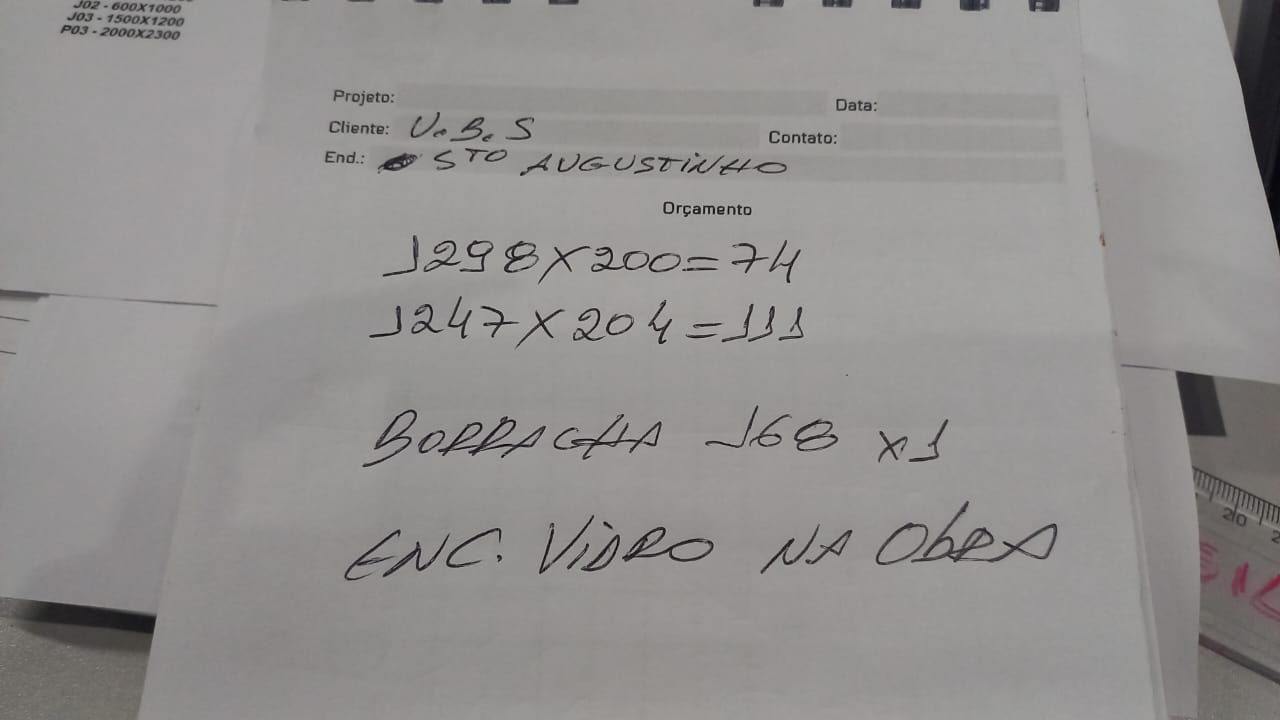 J02 - 600X1000
J03 - 1500X1200
P03 - 2000X2300
Projeto:
Data:
Cliente: U.B.S
Contato:
End.: STO AUGUSTINHO
Orçamento
1298X200=74
1247X204=111
BORRACHA 168 x1
ENC. VIDRO NA ObRA
20